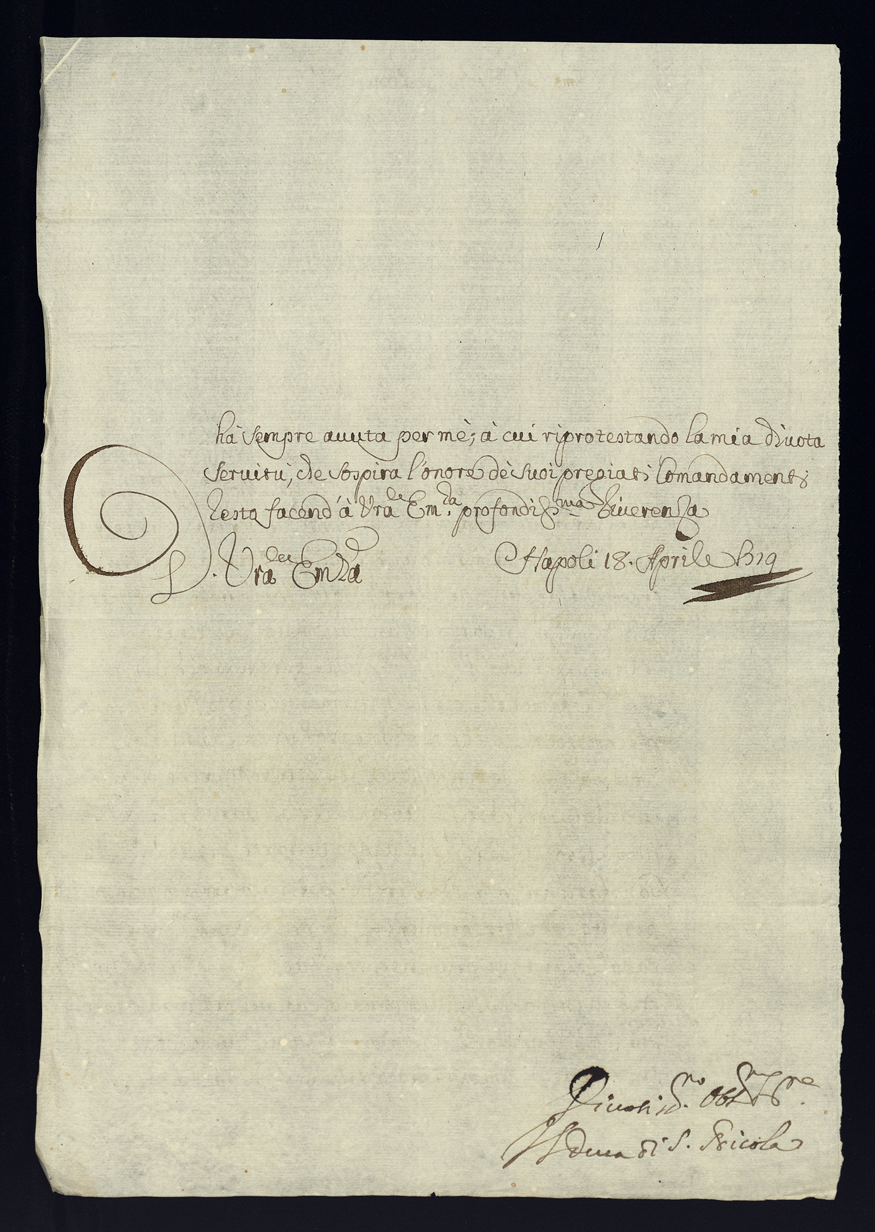 hà sempre auuta per mè; à cui riprotestando la mia diuota
seruitù, che sospira l'onore dè suoi pregiati Comandamenti
resto facend'à Vra Em.za profondiss.ma Riuerenza
D. Vra Emza Napoli 18. Aprile
Diuotiss.mo Obl. re
Il Duca di S. Nicola